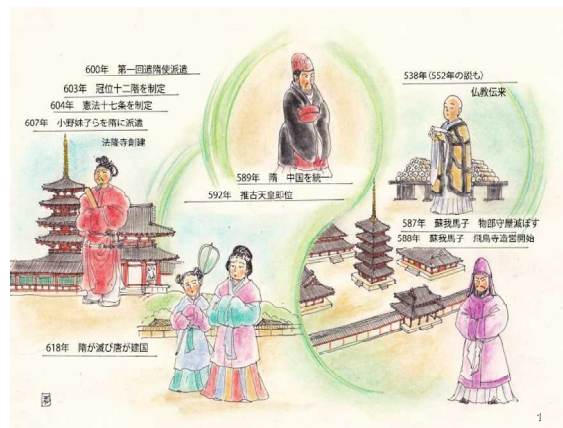 600年 第一回遣隋使派遣
603年 冠位十二階を制定
604年 憲法十七条を制定
607年 小野妹子らを隋に派遣
法隆寺創建
589年 隋 中国を統一
592年 推古天皇即位
538年(552年の説も)
仏教伝来
587年 蘇我馬子 物部守屋滅ぼす
588年 蘇我馬子 飛鳥寺造営開始
618年 隋が滅び唐が建国
1